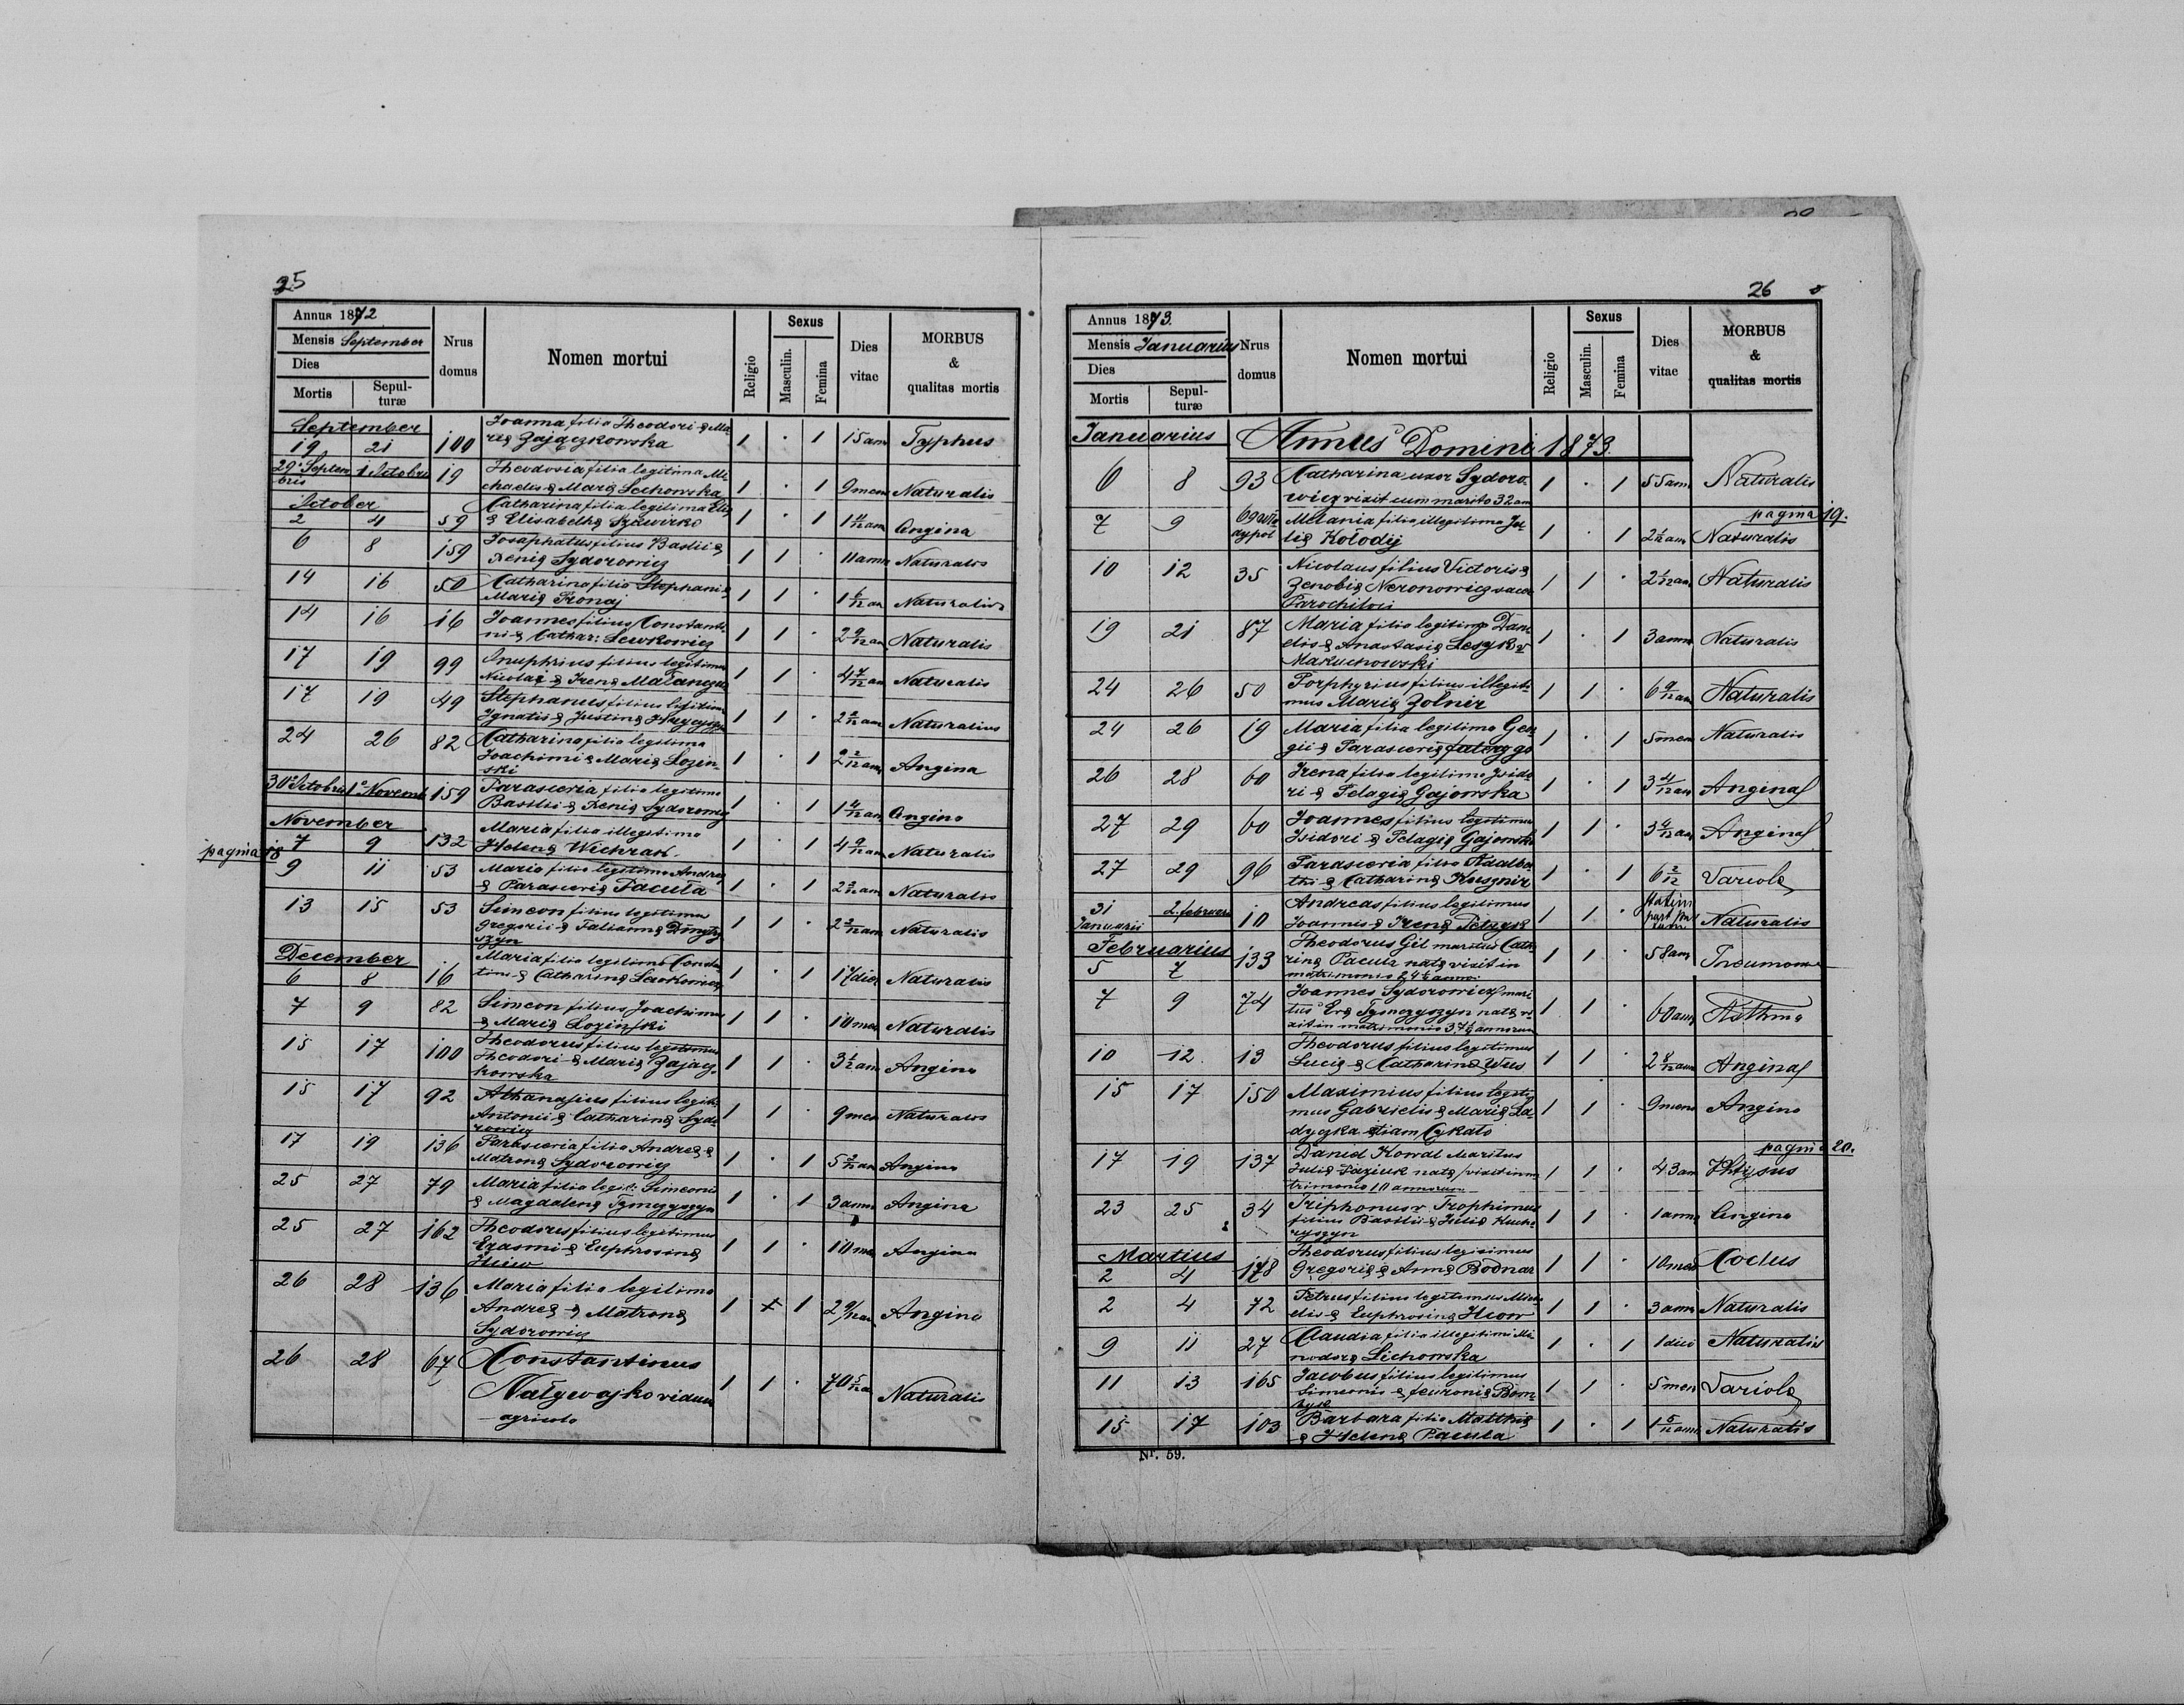 25
Annus 1872
Mensis September
Dies
Mortis
Sepul-
turæ
Nrus
domus
Nomen mortui
Religio
Sexus
Masculin.
Femina
Dies
vitae
MORBUS
&
qualitas mortis
September
Joanna filia Theodori & Ma-
19 21 100 riæ Zajączkowska 1 . 1 15 ann Typhus
29 Septem 1 Octobris 19 Theodosia filia legitima Mi-
bris chaelis & Mariæ Lechowska 1 . 1 9 men Naturalis
October
Catharina filia legitima Eliæ
2 4 59 & Elisabethæ 1 . 1 ann Angina
6 8 159 Josaphatus filius Basilii &
Xeniæ Sydorowicz 1 1 . 11 ann Naturalis
14 16 50 Catharina filia Stephani &
Mariæ Pronaj 1 1 . 1 6/12 an Naturalis
14 16 16 Joannes filius Constanti-
ni & Cathar: Lewkowicz 1 1 . 2 9/12 an Naturalis
17 19 99 Onuphrius filius legitimus
Nicolai & Irenæ 1 1 . 4 7/12 an Naturalis
17 19 49 Stephanus filius legitimus
Ignatii & Justinæ 1 1 . 2 2/12 ann Naturalis
24 26 82 Catharina filia legitima
Joachimi & Mariæ Lozin-
ski 1 . 1 2 2/12 ann Angina
30 Octobris 1 Novemb 159 Parascevia filia legitima
Basilii & Xeniæ Sydorowicz 1 . 1 1 4/12 an Angina
November
Maria filia illegitima
7 9 132 Helenæ Wichrash 1 . 1 4 9/12 an Naturalis
pagina 18
9 11 53 Maria filia legitima Andreæ
& Parasceviæ Pacuła 1 . 1 2 2/12 ann Naturalis
13 15 53 Simeon filius legitimus
Gregorii & Tatiannæ Dmytry
szyn 1 1 . 2 2/12 ann Naturalis
December
Maria filia legitima Constan-
6 8 16 tini & Catharinæ Lewkowicz 1 . 1 17 dier Naturalis
7 9 82 Simeon filius Joachimi
& Mariæ Lozinski 1 1 . 10 men Naturalis
15 17 100 Theodorus filius legitimus
Theodori & Mariæ Zając-
kowska 1 1 . 3 1/2 ann Angina
15 17 92 Athanasius filius legiti
Antonii & Catharinæ Sydo-
rowicz 1 1 . 9 men Naturalis
17 19 136 Parascevia filia Andreæ &
Matronæ Sydorowicz 1 . 1 5 2/12 an Angina
25 27 79 Maria filia legit: Simeonis
& Magdalenæ Tymczyszyn 1 . 1 3 anni Angina
25 27 162 Theodorus filius legitimus
Erasmi & Euphrosinæ
1 1 . 10 men Angina
26 28 136 Maria filia legitima
Andreæ & Matronæ
Sydorowicz 1 + 1 2 9/12 an Angina
26 28 67 Constantinus
Natywajko viduus
agricola 1 1 . 70 5/12 an Naturalis
26
Annus 1873.
Mensis Januarius
Dies
Mortis
Sepul-
turæ
Nrus
domus
Nomen mortui
Religio
Sexus
Masculin.
Femina
Dies
vitae
MORBUS
&
qualitas mortis
Januarius Annus Domini 1873.
6 8 93 Catharina uxor Sydoro-
wicz vixit cum marito 32 ann 1 . 1 55 ann Naturalis
pagina 19.
7 9 69 Melania filia illegitima Ju-
liæ Kołodij 1 . 1 ann Naturalis
10 12 35 Nicolaus filius Victoris &
Zenobiæ Neronowicz
Parochi loci 1 1 . an Naturalis
19 21 87 Maria filia legitima Dani-
elis & Anastasiæ
1 . 1 3 anni Naturalis
24 26 50 Porphyrius filius illegiti-
mus Mariæ Zołnir 1 1 . 6 9/12 ann Naturalis
24 26 19 Maria filia legitima Geor-
gii & Parasceviæ 1 . 1 5 men Naturalis
26 28 60 Irena filia legitima Isido-
ri & Pelagiæ Gajowska 1 . 1 3 4/12 an Angina
27 29 60 Joannes filius legitimus
Isidori & Pelagiæ Gajowski 1 1 . 3 4/12 an Angina
27 29 96 Parascevia filia Adalber-
thi & Catharinæ Kusznir 1 . 1 6 2/12 Variola
31 2 februar 10 Andreas filius legitimus
Januarii Joannis & Irenæ 1 1 . statim
post par
tum Naturalis
Februarius
5 7 133 Theodorus Gil maritus Catha-
rinæ Pacula natæ vixit in
matrimonio 24 1/2 anni 1 1 . 58 ann Pneumonia
7 9 74 Joannes Sydorowicz mari-
tus Evæ Tymczyszyn natæ vi-
xit in matrimonio 37 1/2 annorum 1 1 . 60 ann Asthma
10 12 13 Theodorus filius legitimus
Lucæ & Catharinæ Wus 1 1 . 2 8/12 ann Angina
15 17 150 Maximius filius legiti-
mus Gabrielis & Mariæ La-
dyzka etiam Cykato 1 1 . 9 mens Angina
pagina 20.
17 19 137 Daniel Kowal Maritus
Juliæ natæ vixit in ma
trimonio 10 annorum 1 1 . 43 ann Phtysus
23 25 34 Triphonus v. Trophimus
filius Basilii & Juliæ Kucha-
ryszyn 1 1 . 1 anni Angina
Martius
2 4 178 Theodorus filius legitimus
Gregorii & Annæ Bodnar 1 1 . 10 men Coclus
2 4 72 Petrus filius legitimus Micha-
elis & Euphrosinæ Hlow 1 1 . 3 anni Naturalis
9 11 27 Claudia filia illegitima Mi-
nodoræ Lichowska 1 . 1 1 diei Naturalis
11 13 165 Jacobus filius legitimus
Simeonis & Fewroniæ Bom-
1 1 . 5 men Variola
15 17 103 Barbara filia Matthiæ
& Helenæ Pacuła 1 . 1 1 5/12 anni Naturalis
Nr. 59.